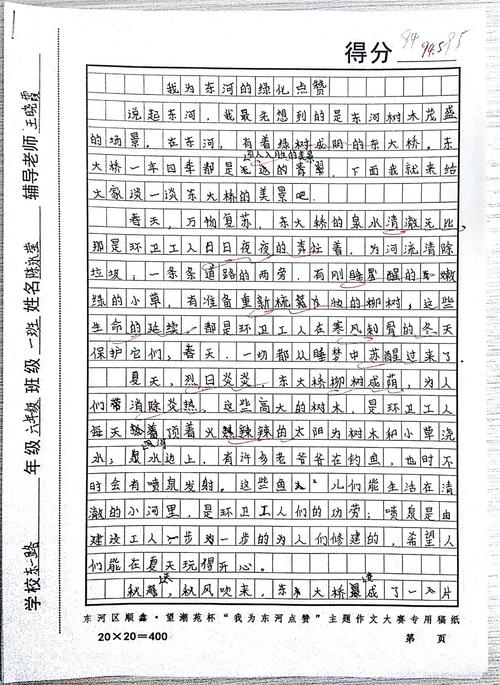 得分 94.5
我为东河的绿化点赞
说起东河，我最先想到的是东河树木茂盛
的场景。在东河，有着绿树成阴的东大桥，东
引人入胜的美景
大桥一年四季都是无边的青翠，下面我就来给
大家谈一谈东大桥的美景吧。
春天，万物复苏，东大桥的泉水清澈无比，
那是环卫工人日日夜夜的奔社着，为河流清除
垃圾；一条条道路的两旁，有刚睡醒的嫩
绿的小草，有准备重新梳装的柳树，这些
生命的延续，都是环卫工人在寒风刺骨的冬天
保护它们，春天，一切都从睡梦中苏醒过来了。
夏天，烈日炎炎，东大桥柳树成荫，为人
们带消除炎热，这些高大的树木，是环卫工人
每天顶着火热辣辣的太阳为树木和小草浇
水，泉水边上，有许多老爷爷在钓鱼，也时不
时会有喷泉发射。这些鱼儿们能生活在清
澈的小河里，是环卫工人们的功劳；喷泉是由
建设工人一步为一步的为人们修建的，希望人
们能在夏天玩得开心。
秋，秋风吹来，东大桥成了一片
东河区顺鑫·望潮苑杯“我为东河点赞”主题作文大赛专用稿纸
20×20=400 第 页
学校 东路 年级 六年级 班级 一班 姓名 陈泳莹 辅导老师 王晓霞